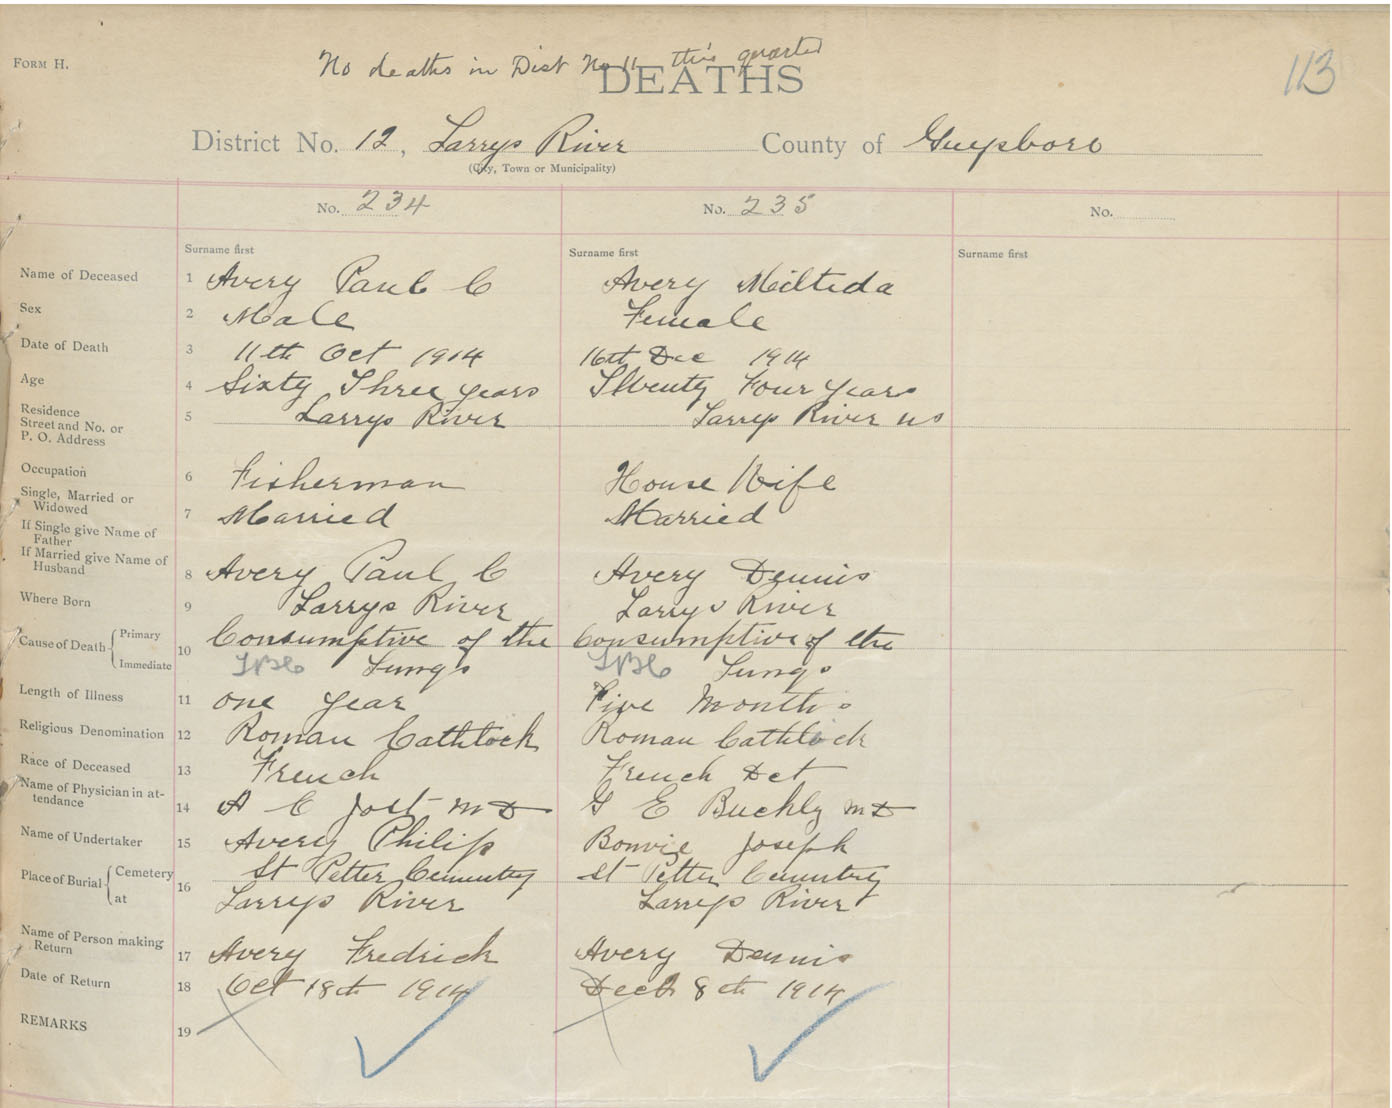 FORM H.
No deaths in Dist No 11 this quarter
DEATHS
113
District No. 12, Larrys River County of Guysboro
(City, Town or Municipality)
No. 234 No. 235 No.
Surname first Surname first Surname first
Name of Deceased 1 Avery Paul C Avery Miltida
Sex 2 Male Female
Date of Death 3 11th Oct 1914 16th Dec 1914
Age 4 Sixty Three years Seventy Four years
Residence
Street and No. or
P. O. Address
5 Larrys River Larrys River NS
Occupation 6 Fisherman House Wife
Single, Married or
Widowed
7 Married Married
If Single give Name of
Father
If Married give Name of
Husband
8 Avery Paul C Avery Dennis
Where Born 9 Larrys River Larrys River
Cause of Death { Primary
Immediate
10 Consumptive of the Consumptive of the
Lungs Lungs
Length of Illness 11 one year Five Months
Religious Denomination 12 Roman Cathlock Roman Cathlock
Race of Deceased 13 French French Det
Name of Physician in at-
tendance
14 A C Jost MD G E Buckly MD
Name of Undertaker 15 Avery Philip Bonvie Joseph
Place of Burial { Cemetery
at
16 St Petter Cementry St Petter Cementry
Larrys River Larrys River
Name of Person making
Return
17 Avery Fredrick Avery Dennis
Date of Return 18 Oct 18th 1914 Dec 8th 1914
REMARKS 19